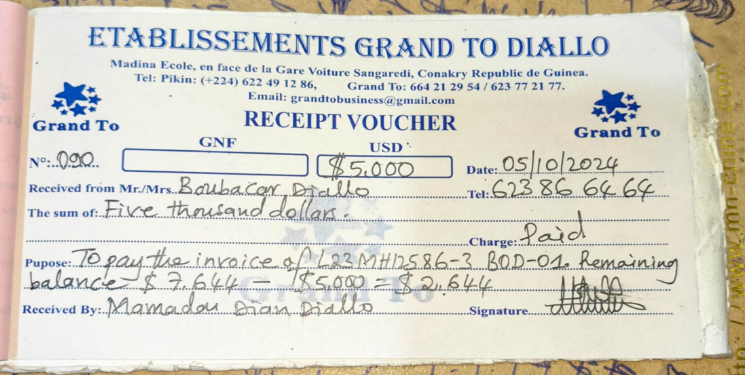 ETABLISSEMENTS GRAND TO DIALLO
Madina Ecole, en face de la Gare Voiture Sangaredi, Conakry Republic de Guinea.
Tel: Pikin: (+224) 622 49 12 86, Grand To: 664 21 29 54 / 623 77 21 77.
Email: grandtobusiness@gmail.com
Grand To
RECEIPT VOUCHER
Grand To
GNF USD
N°: 090 $5.000 Date: 05/10/2024
Received from Mr./Mrs. Boubacar Diallo Tel: 623 86 64 64
The sum of: Five thousand dollars.
Charge: Paid
Pupose: To pay the invoice of L23MH12586-3 BOD-01. Remaining
balance $ 7.644 — $5.000 = $ 2.644
Grand To
Received By: Mamadou Dian Diallo Signature